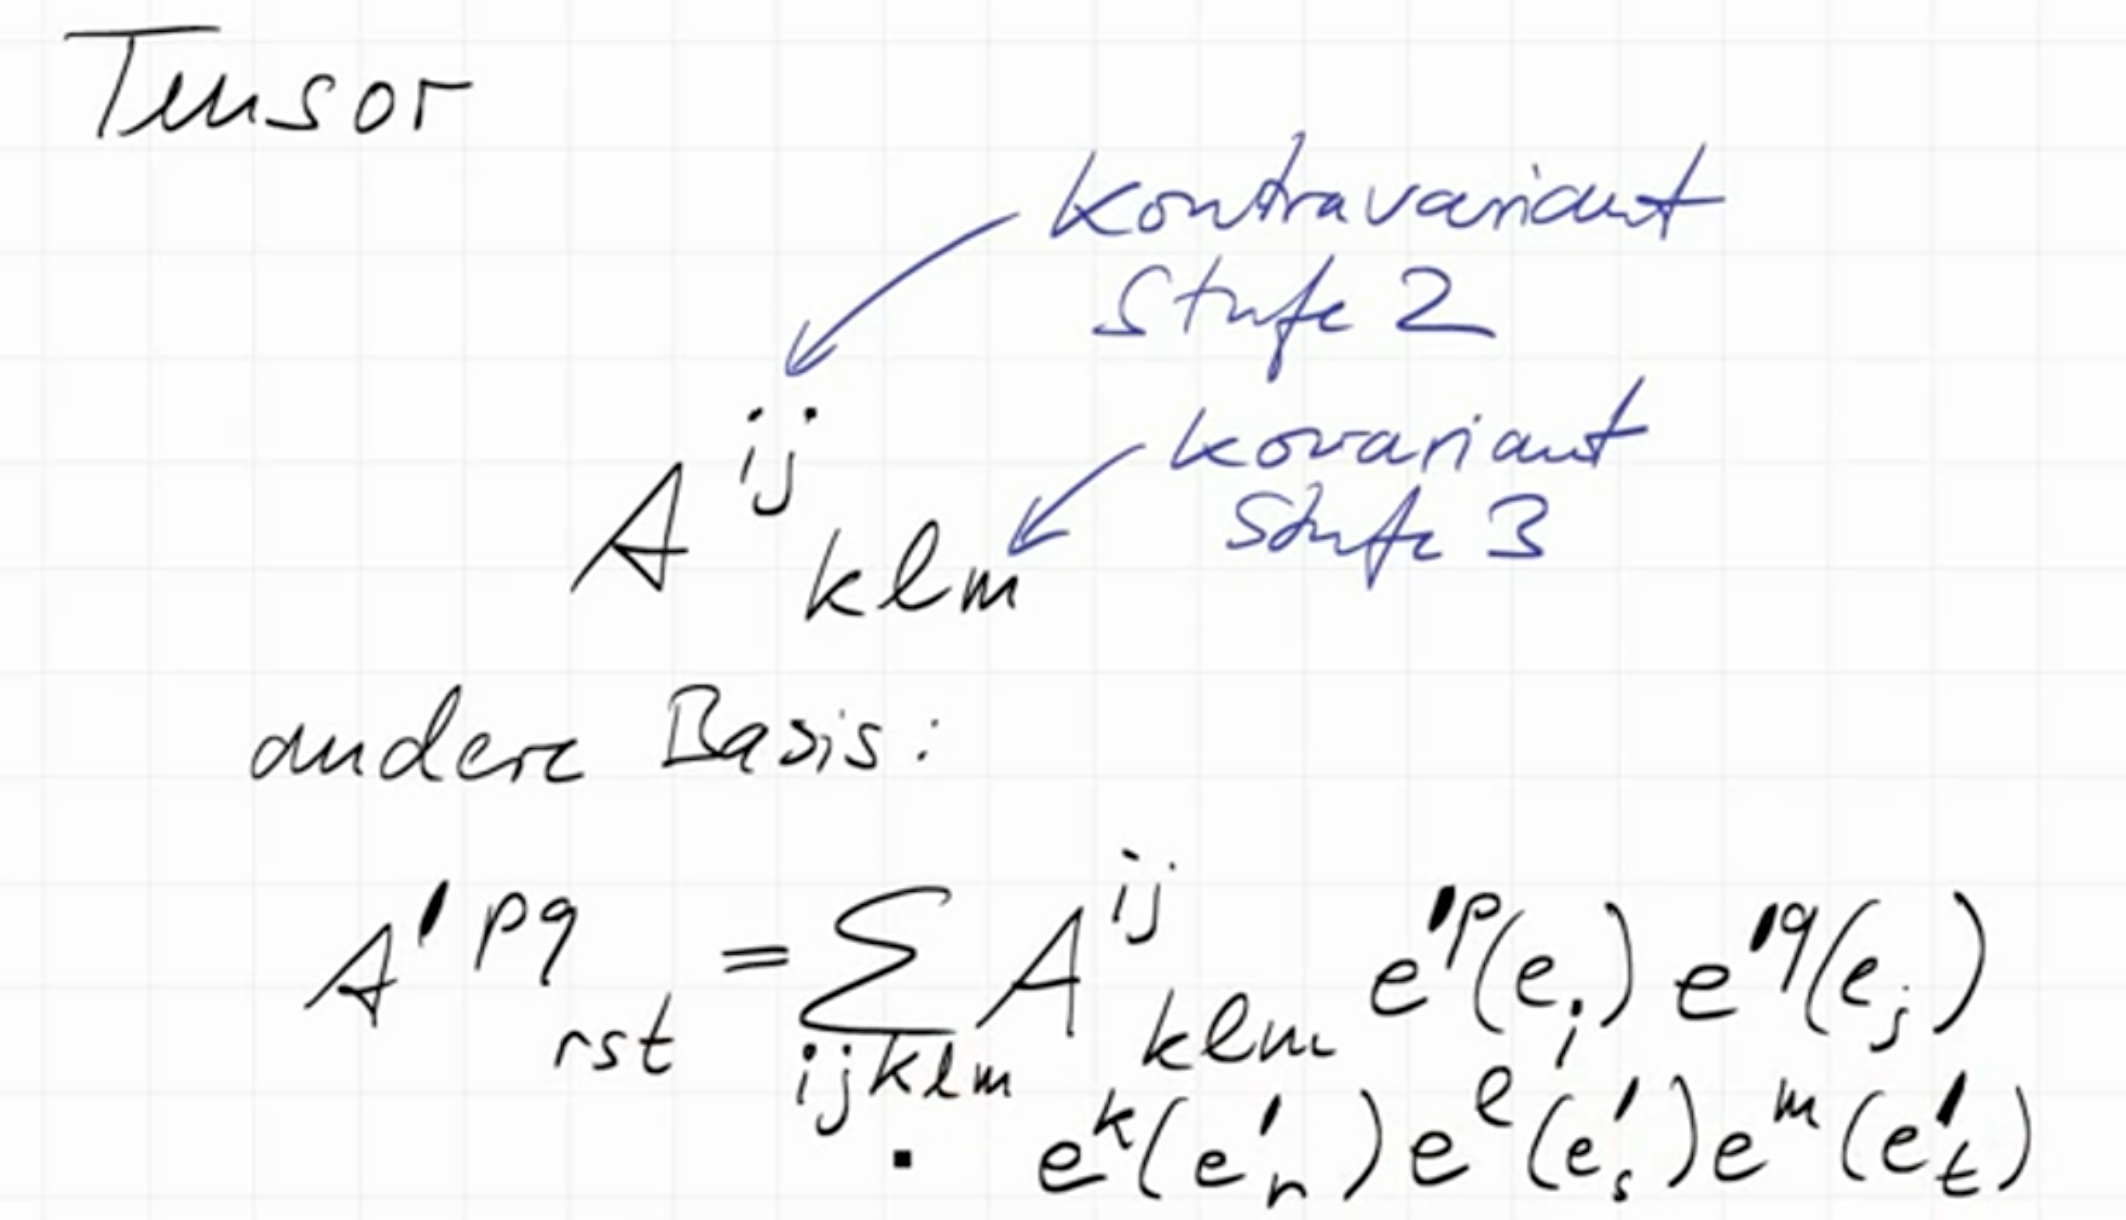 Tensor
kontravariant
Stufe 2
kovariant
Stufe 3
A^{ij}_{klm}
andere Basis:
A'^{pq}_{rst} = ∑_{ijklm} A^{ij}_{klm} e'^p(e_i) e'^q(e_j)
· e^k(e'_r) e^l(e'_s) e^m(e'_t)